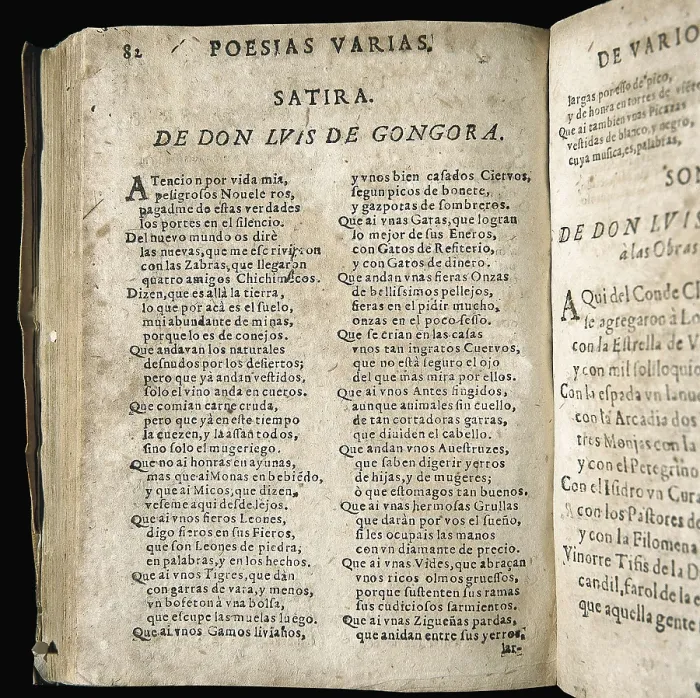 82 POESIAS VARIAS.
SATIRA.
DE DON LVIS DE GONGORA.
ATencion por vida mia,
peligrosos Nouele ros,
pagadme de estas verdades
los portes en el silencio.
Del nuevo mundo os dirè
las nuevas, que me escrivieron
con las Zabras, que llegaron
quatro amigos Chichimecos.
Dizen, que es allà la tierra,
lo que por acà es el suelo,
mui abundante de minas,
porque lo es de conejos.
Que andavan los naturales
desnudos por los desiertos;
pero que yà andan vestidos,
solo el vino anda en cueros.
Que comian carne cruda,
pero que yà en este tiempo
la cuezen, y la assan todos,
sino solo el mugeriego.
Que no ai honras en ayunas,
mas que ai Monas en bebiedo,
y que ai Micos, que dizen,
veseme aqui desde lejos.
Que ai vnos fieros Leones,
digo fieros en sus Fieros,
que son Leones de piedra,
en palabras, y en los hechos.
Que ai vnos Tigres, que dàn
con garras de vara, y menos,
vn bofeton à vna bolsa,
que escupe las muelas luego.
Que ai vnos Gamos livianos,
y vnos bien casados Ciervos,
segun picos de bonete,
y gazporas de sombreros.
Que ai vnas Gatas, que logran
lo mejor de sus Eneros,
con Gatos de Refiterio,
y con Gatos de dinero.
Que andan vnas fieras Onzas
de bellissimos pellejos,
fieras en el pidir mucho,
onzas en el poco sesso.
Que se crian en las casas
vnos tan ingratos Cuervos,
que no està seguro el ojo
del que mas mira por ellos.
Que ai vnos Antes fingidos,
aunque animales sin cuello,
de tan cortadoras garras,
que diuiden el cabello.
Que andan vnos Auestruzes,
que saben digerir yerros
de hijas, y de mugeres;
ò que estomagos tan buenos.
Que ai vnas hermosas Grullas
que daràn por vos el sueño,
si les ocupais las manos
con vn diamante de precio.
Que ai vnas Vides, que abraçan
vnos ricos olmos gruessos,
porque sustenten sus ramas
sus cudiciosos sarmientos.
Que ai vnas Zigueñas pardas,
que anidan entre sus yerros,
lar-
DE VARIO
largas por esso de pico,
y de honra en torres de
Que ai tambien vnas Picazas
vestidas de blanco, y negro,
cuya musica, es, palabras,
SON
DE DON LVIS
à las Obras
AQui del Conde Cl
se agregaron à Lo
con la Estrella de V
y con mil soliloquio
Con la espada vn
con la Arcadia dos
tres Monjas con la
y con el Peregrino
Con el Isidro vn Cura
con los Pastores de
y con la Filomena
Vinorre Tifis de la D
candil, farol de la e
que aquella gente